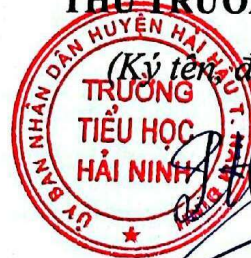 THỦ TRƯỞ
(Ký tên, đ
ỦY BAN NHÂN DÂN HUYỆN HẢI HẬU T.
TRƯỜNG
TIỂU HỌC
HẢI NINH